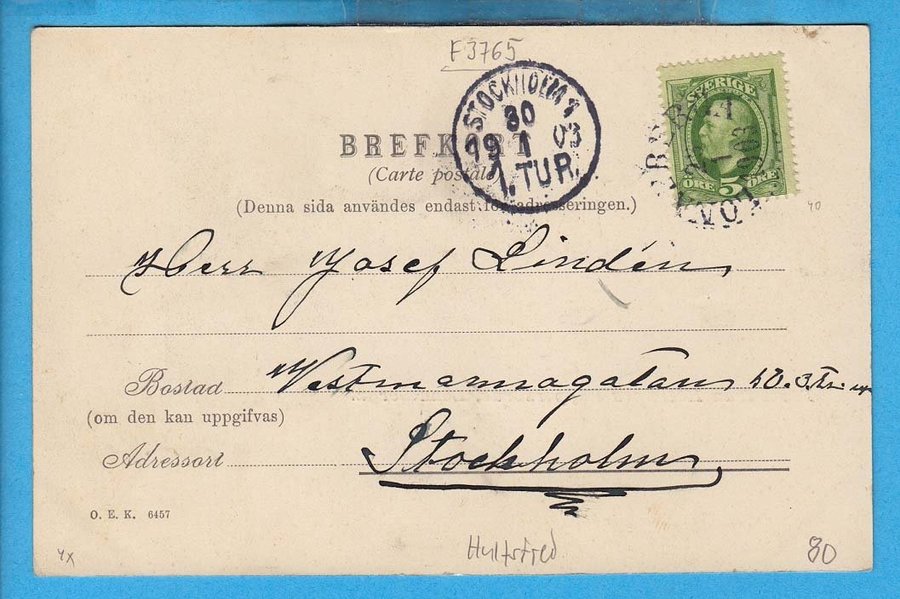 F3765
STOCKHOLM 1
30
19 1 03
1. TUR.
SVERIGE
ÖRE 5 ÖRE
BREFKORT
(Carte postale)
(Denna sida användes endast för adresseringen.)
40
Herr Josef Lindén
Bostad Westmannagatan 3. tr. upp
(om den kan uppgifvas)
Adressort Stockholm
O. E. K. 6457
4x
Hultsfred
80